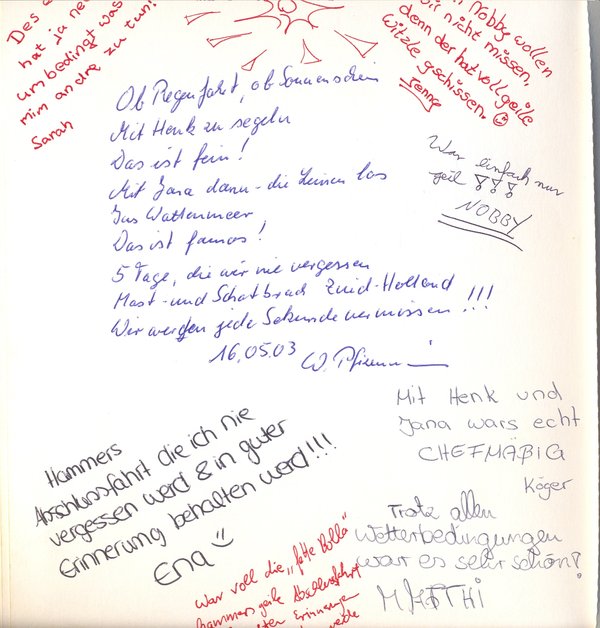 hat ja
umbedingt was
mim andre zu tun!
Sarah
Nobby wollen
wir nicht missen,
denn der hat voll geile
Witzle gschissen. ☺
Jenny
Ob Regenfahrt, ob Sonnenschein
Mit Henk zu segeln
Das ist fein!
Mit Jana dann - die Leinen los
Ins Wattenmeer
Das ist famos!
5 Tage, die wir nie vergessen
Mast- und Zuid-Holland
Wir werden jede Sekunde vermissen!!!
16.05.03 W.
War einfach nur
geil !!!
NOBBY
Mit Henk und
Jana wars echt
CHEFMÄßIG
Köger
Hammers
Abschlussfahrt die ich nie
vergessen werd & in guter
Erinnerung behalten werd!!!
Ena ☺
Trotz allen
Wetterbedingungen
war es sehr schön!
MATTHI
war voll die „fette Rolle"
hammers geile
Erinnerung